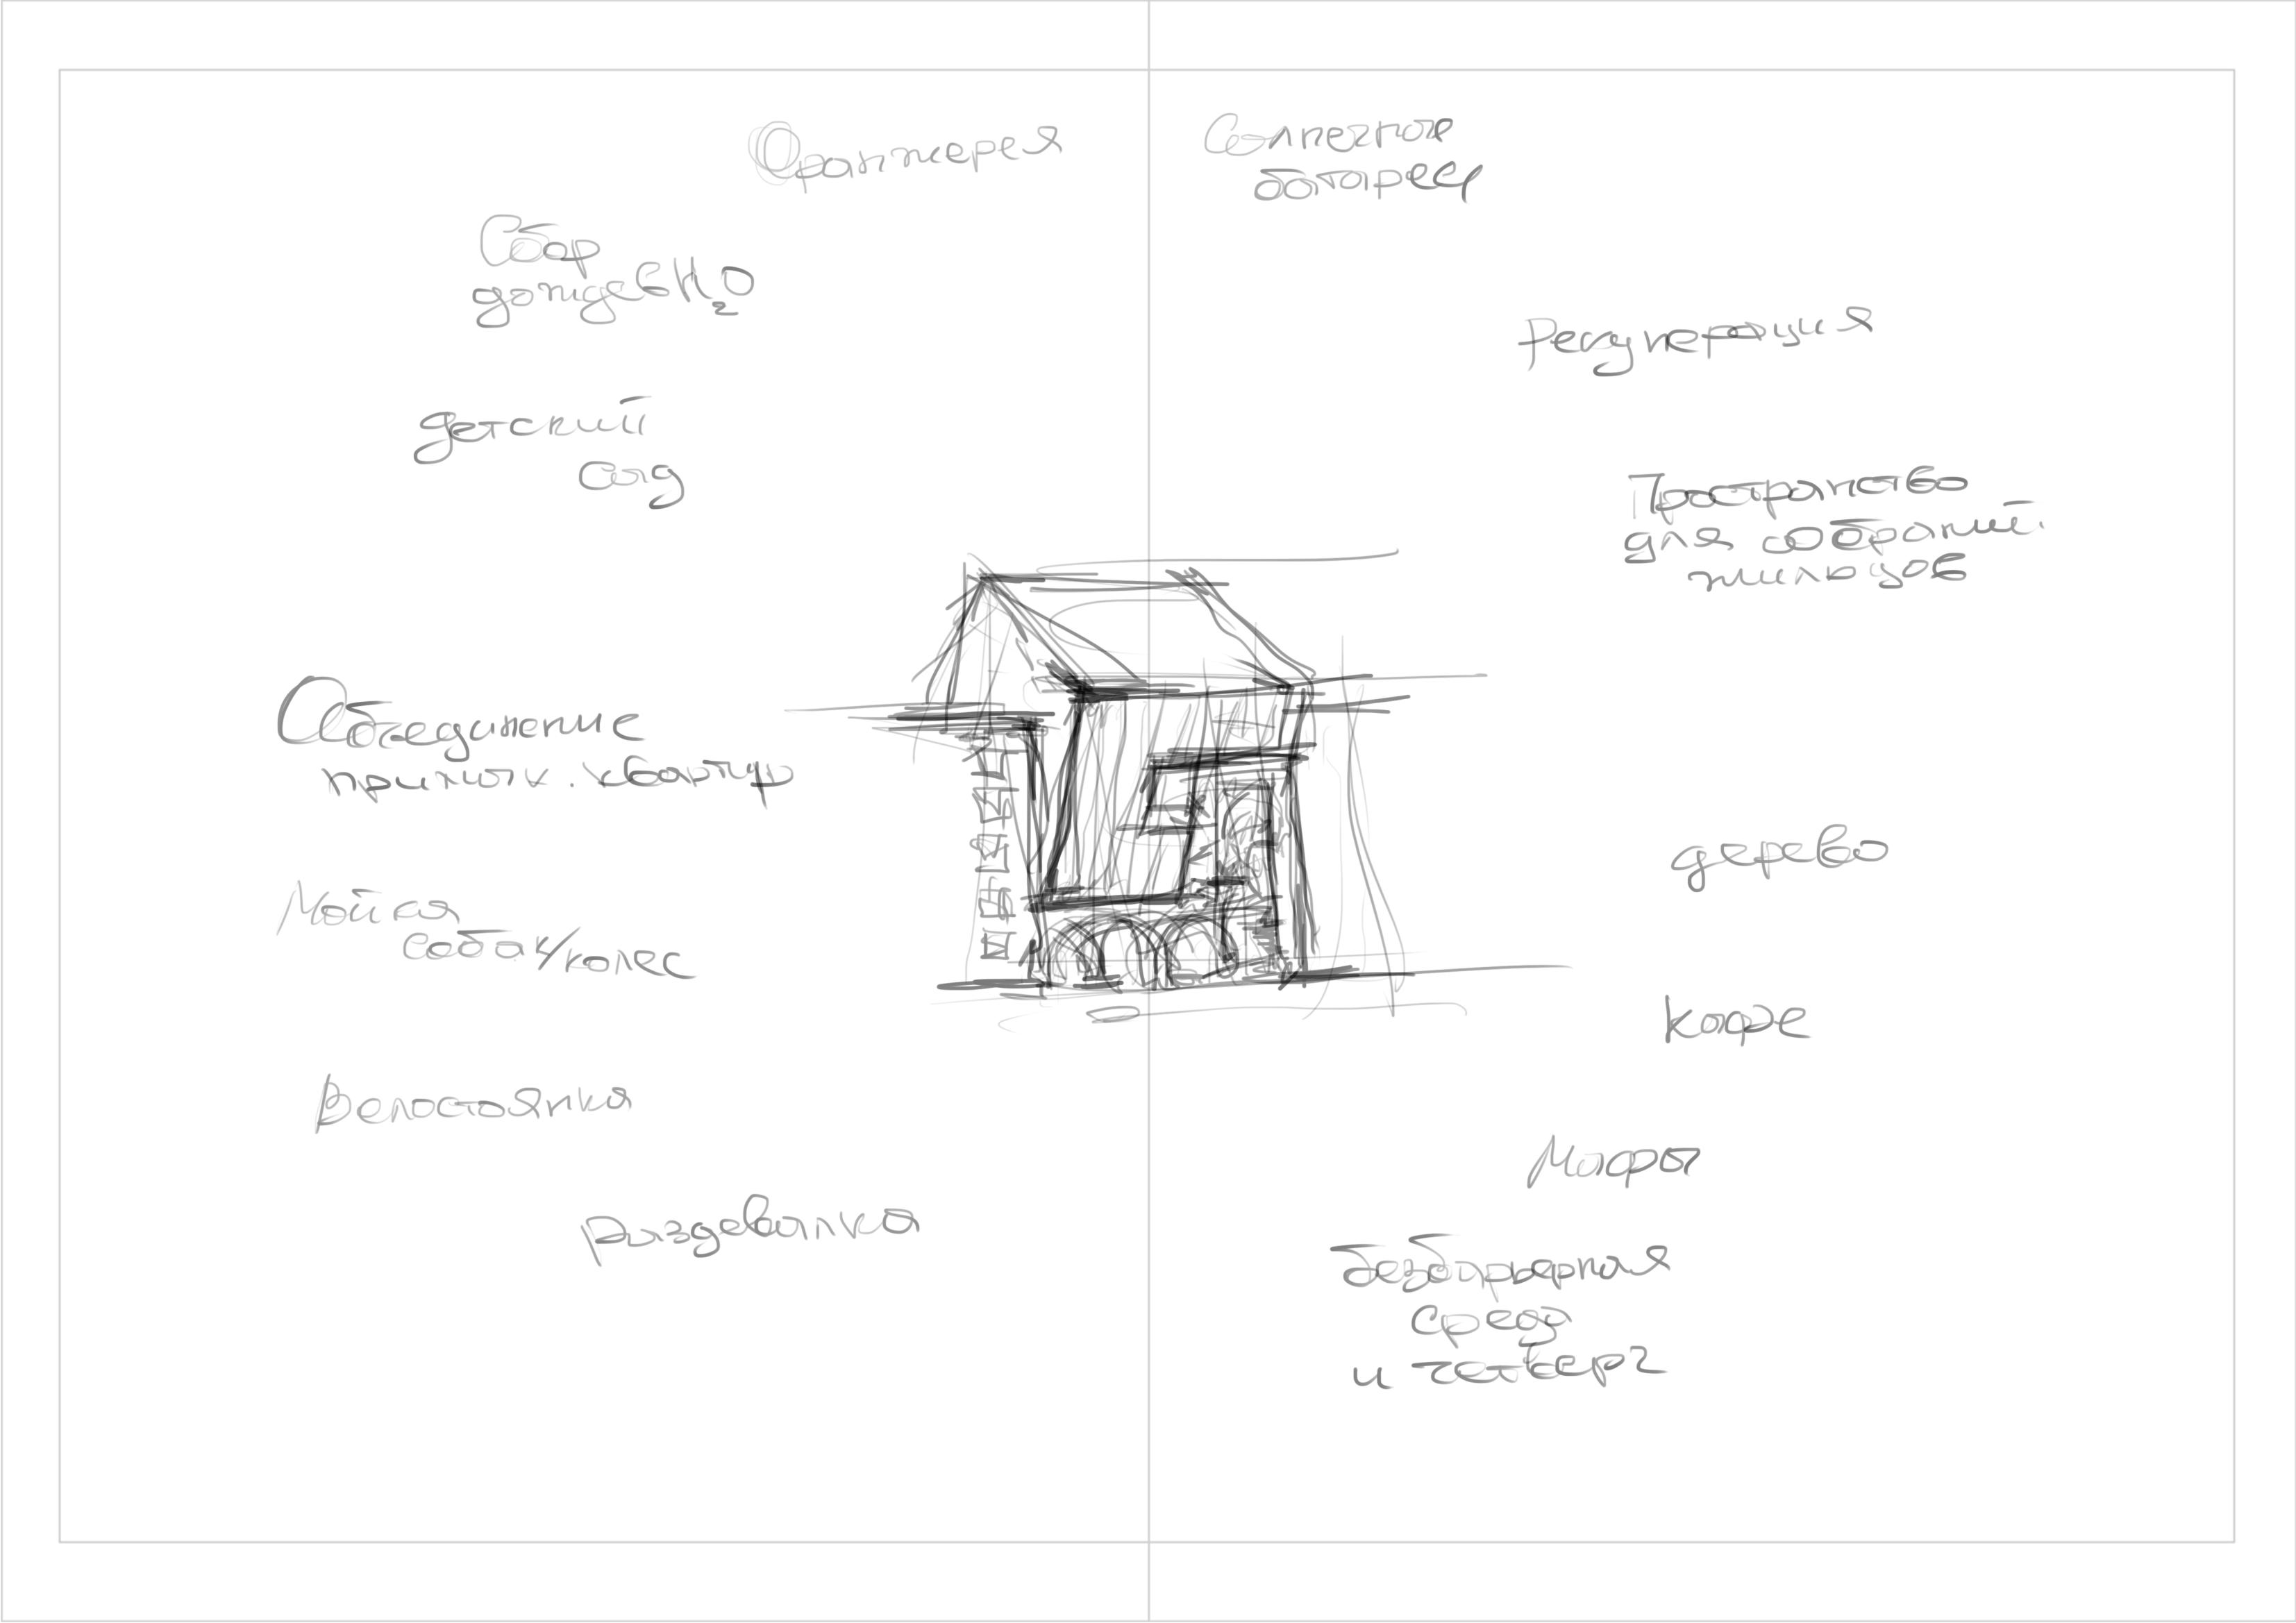 Оранжерея
Солнечная
батарея
Сбор
дождев H2O
Рекуперация
детский
сад
Пространство
для собраний
жильцов
Объединение
прилож. квартир
дерево
Мойка
собак/колес
Кафе
Велостоянка
Мафы
раздевалка
безбарьерная
среда
и четверг